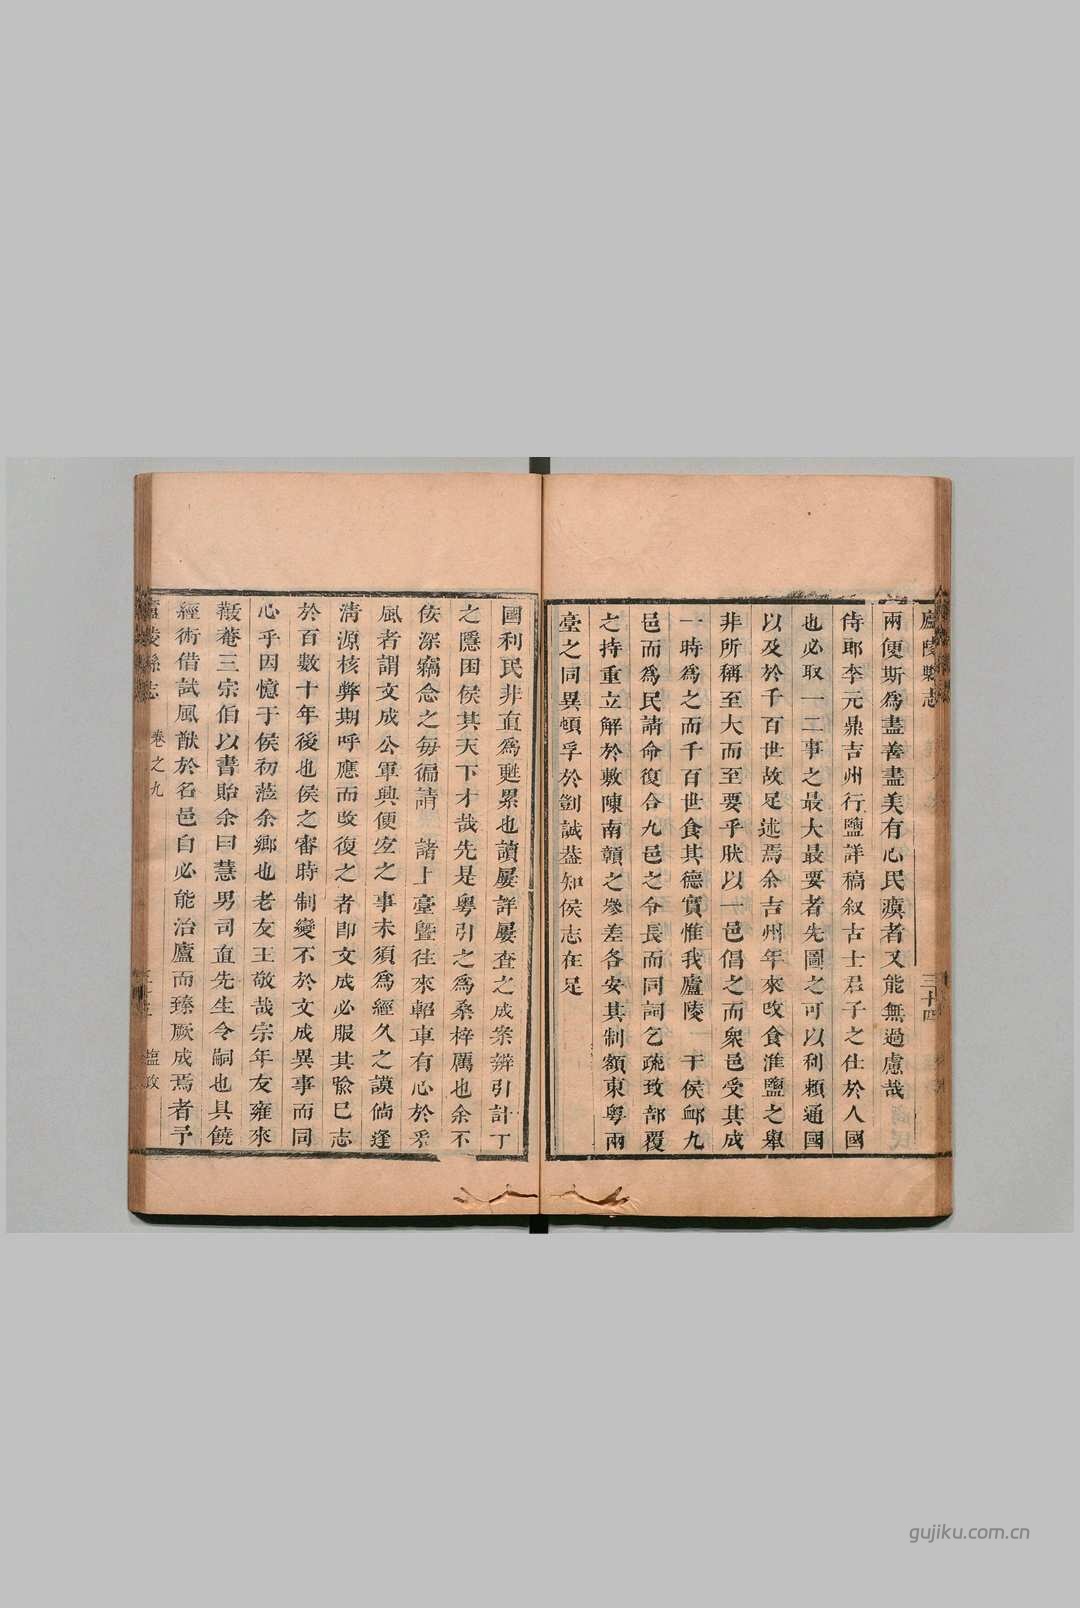 廬陵縣志
三十四
兩便斯為盡善盡美有心民瘼者又能無過慮哉
侍郎李元鼎吉州行鹽詳稿叙古士君子之仕於人國
也必取一二事之最大最要者先圖之可以利賴通國
以及於千百世故足述焉余吉州年來改食淮鹽之舉
非所稱至大而至要乎肰以一邑倡之而衆邑受其成
一時為之而千百世食其德實惟我廬陵 于侯邮九
邑而為民請命復合九邑之令長而同詞乞疏攻部覆
之持重立解於敷陳南贛之參差各安其制額東粤兩
臺之同異頓孚於劄誠葢知侯志在足
國利民非直為甦累也讀屢詳屢查之成案辨引計丁
之隱困侯其天下才哉先是粤引之為桑梓厲也余不
侫深竊念之每徧請 諸上臺曁往來軺車有心於采
風者謂文成公軍興便宐之事未須為經久之謨倘逢
清源核弊期呼應而改復之者卽文成必服其賒巳志
於百數十年後也侯之審時制變不於文成異事而同
心乎因憶于侯初蒞余鄉也老友王敬哉宗年友雍來
菴三宗伯以書貽余曰慧男司直先生令嗣也具饒
經術借試風猷於名邑自必能治廬而臻厥成焉者予
廬陵縣志
卷之九
塩政
gujiku.com.cn